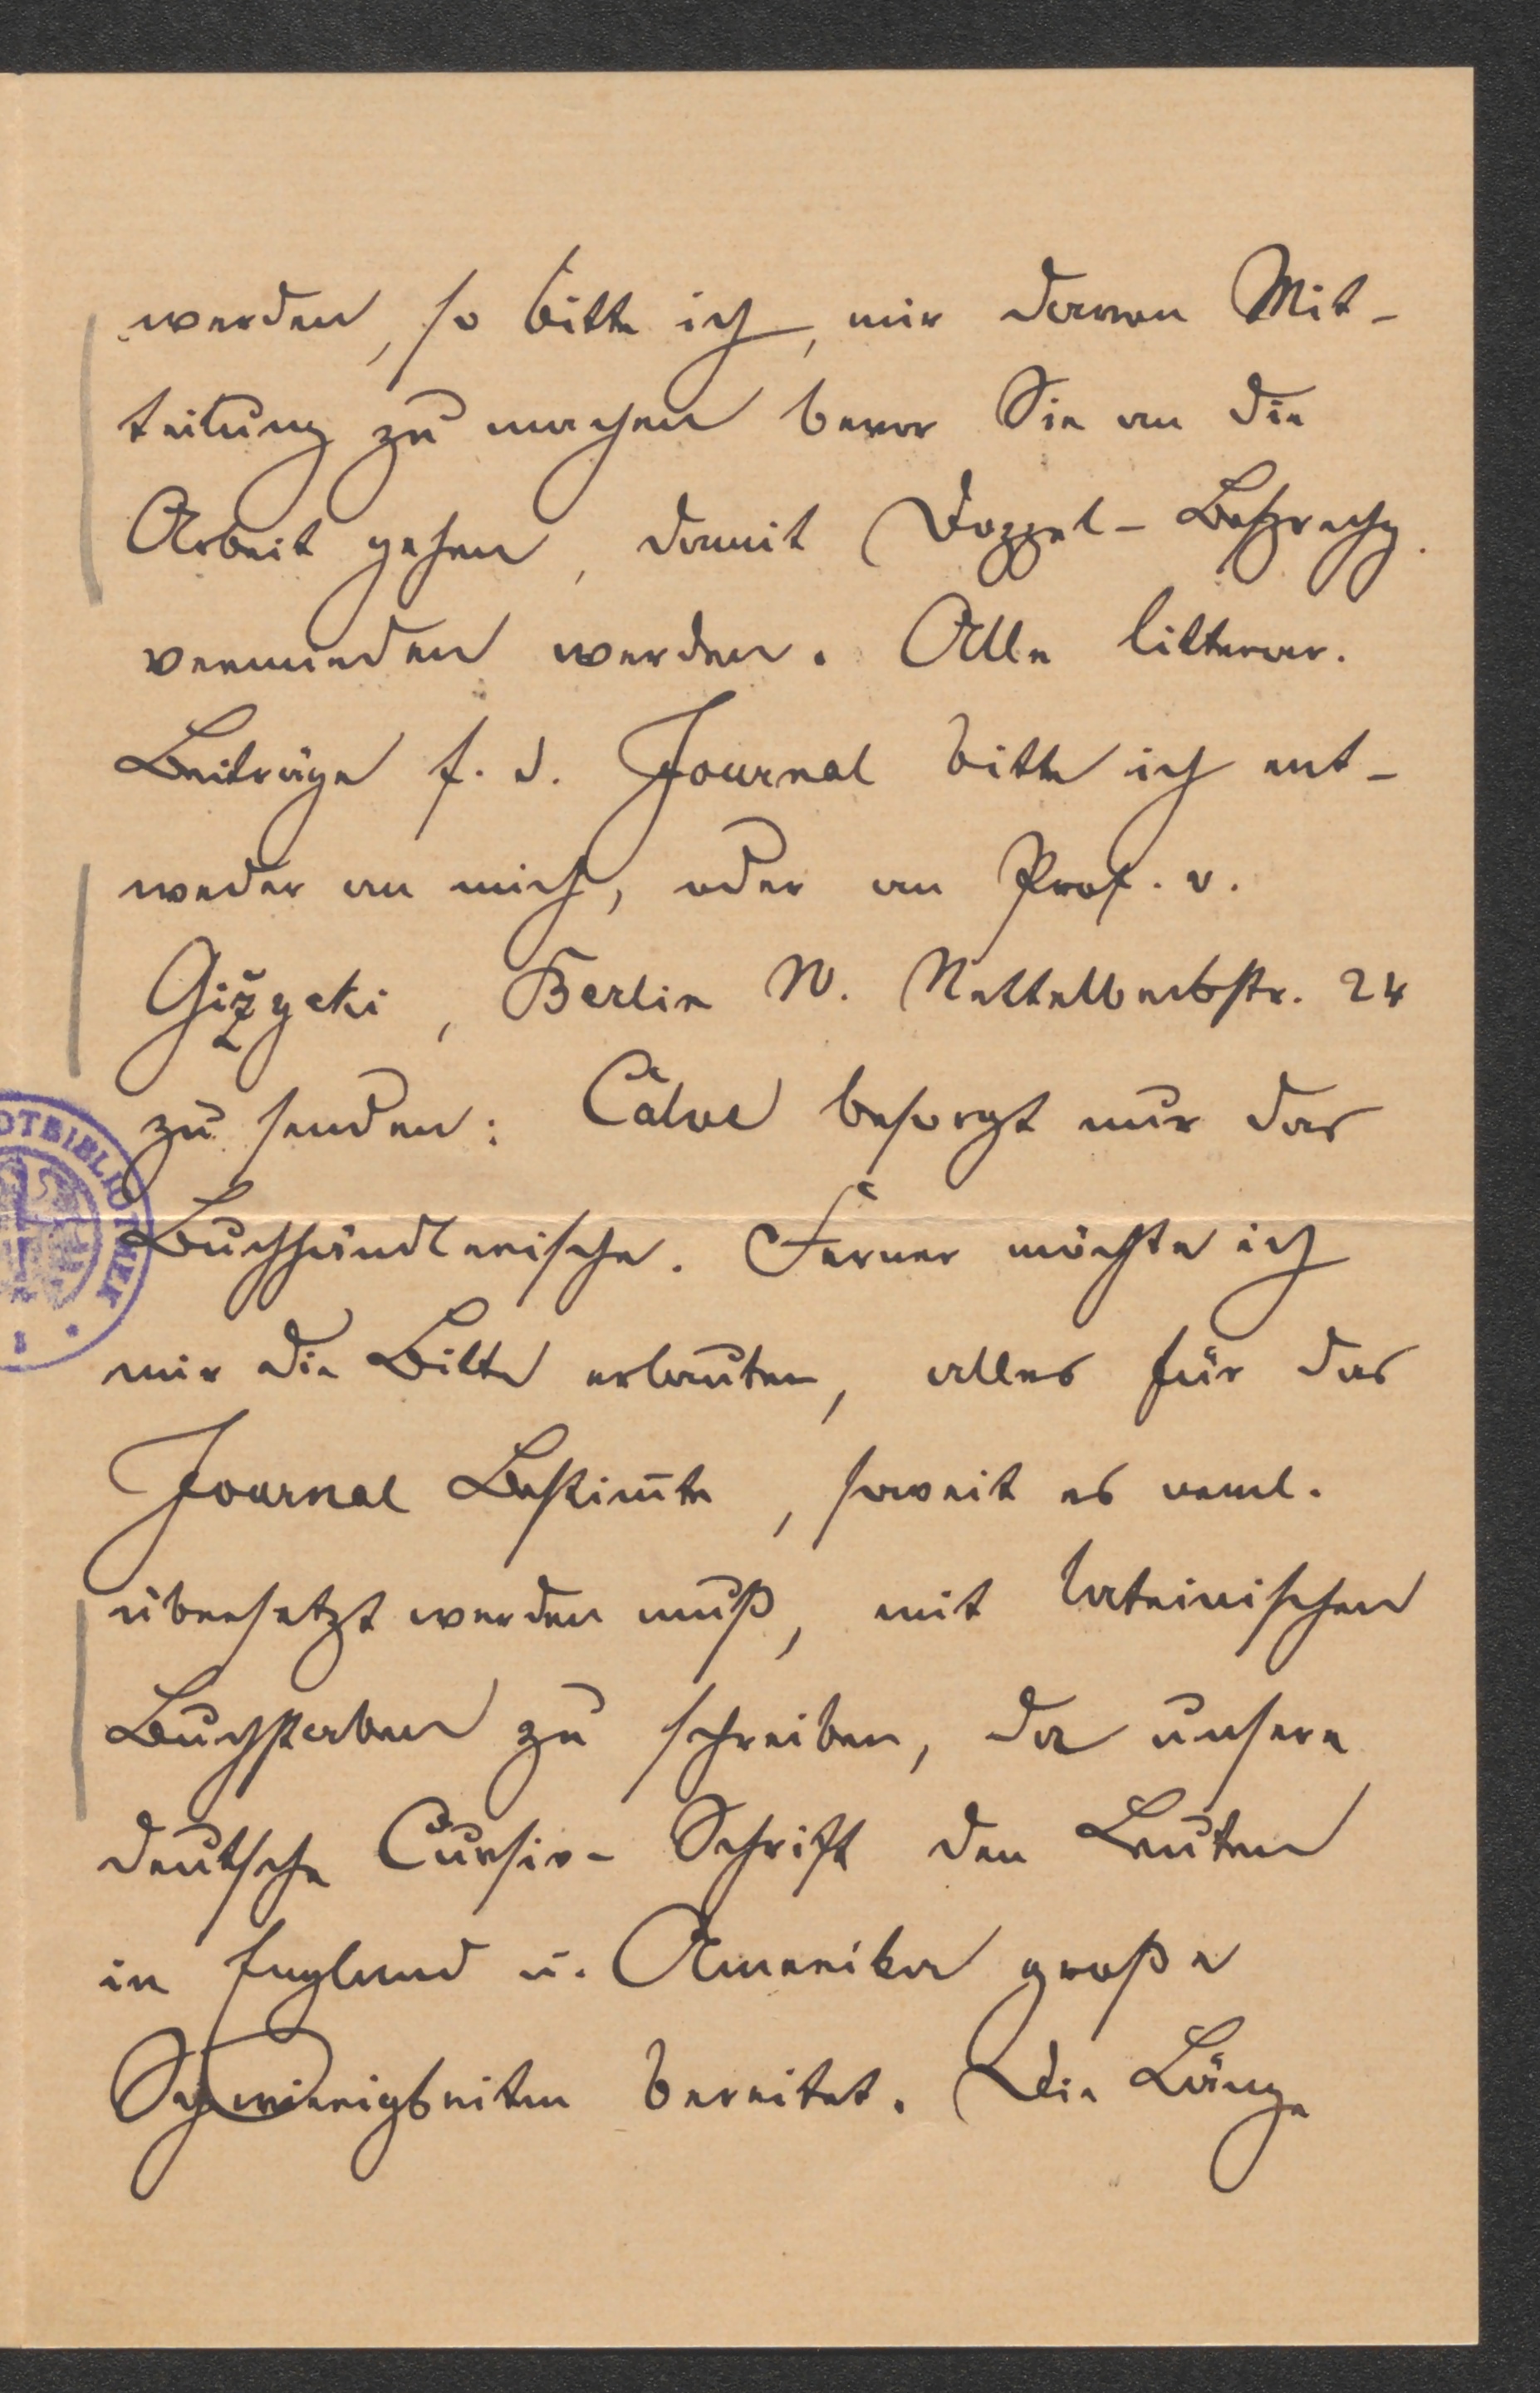 werden, so bitte ich, mir davon Mit-
teilung zu machen bevor Sie an die
Arbeit gehen, damit Doppel-Besprechg.
vermieden werden. Alle litterar.
Beiträge f. d. Journal bitte ich ent-
weder an mich, oder an Prof. v.
Giżycki, Berlin W. Nettelbeckstr. 24
zu senden: Calve besorgt nur das
Buchhändlerische. Ferner möchte ich
mir die Bitte erlauben, alles für das
Journal Bestim̅te, soweit es
übersetzt werden muß, mit lateinischen
Buchstaben zu schreiben, da unsere
deutsche Cursiv-Schrift den Leuten
in England u. Amerika große
Schwierigkeiten bereitet. Die Länge
OTBIBLIOTHEK